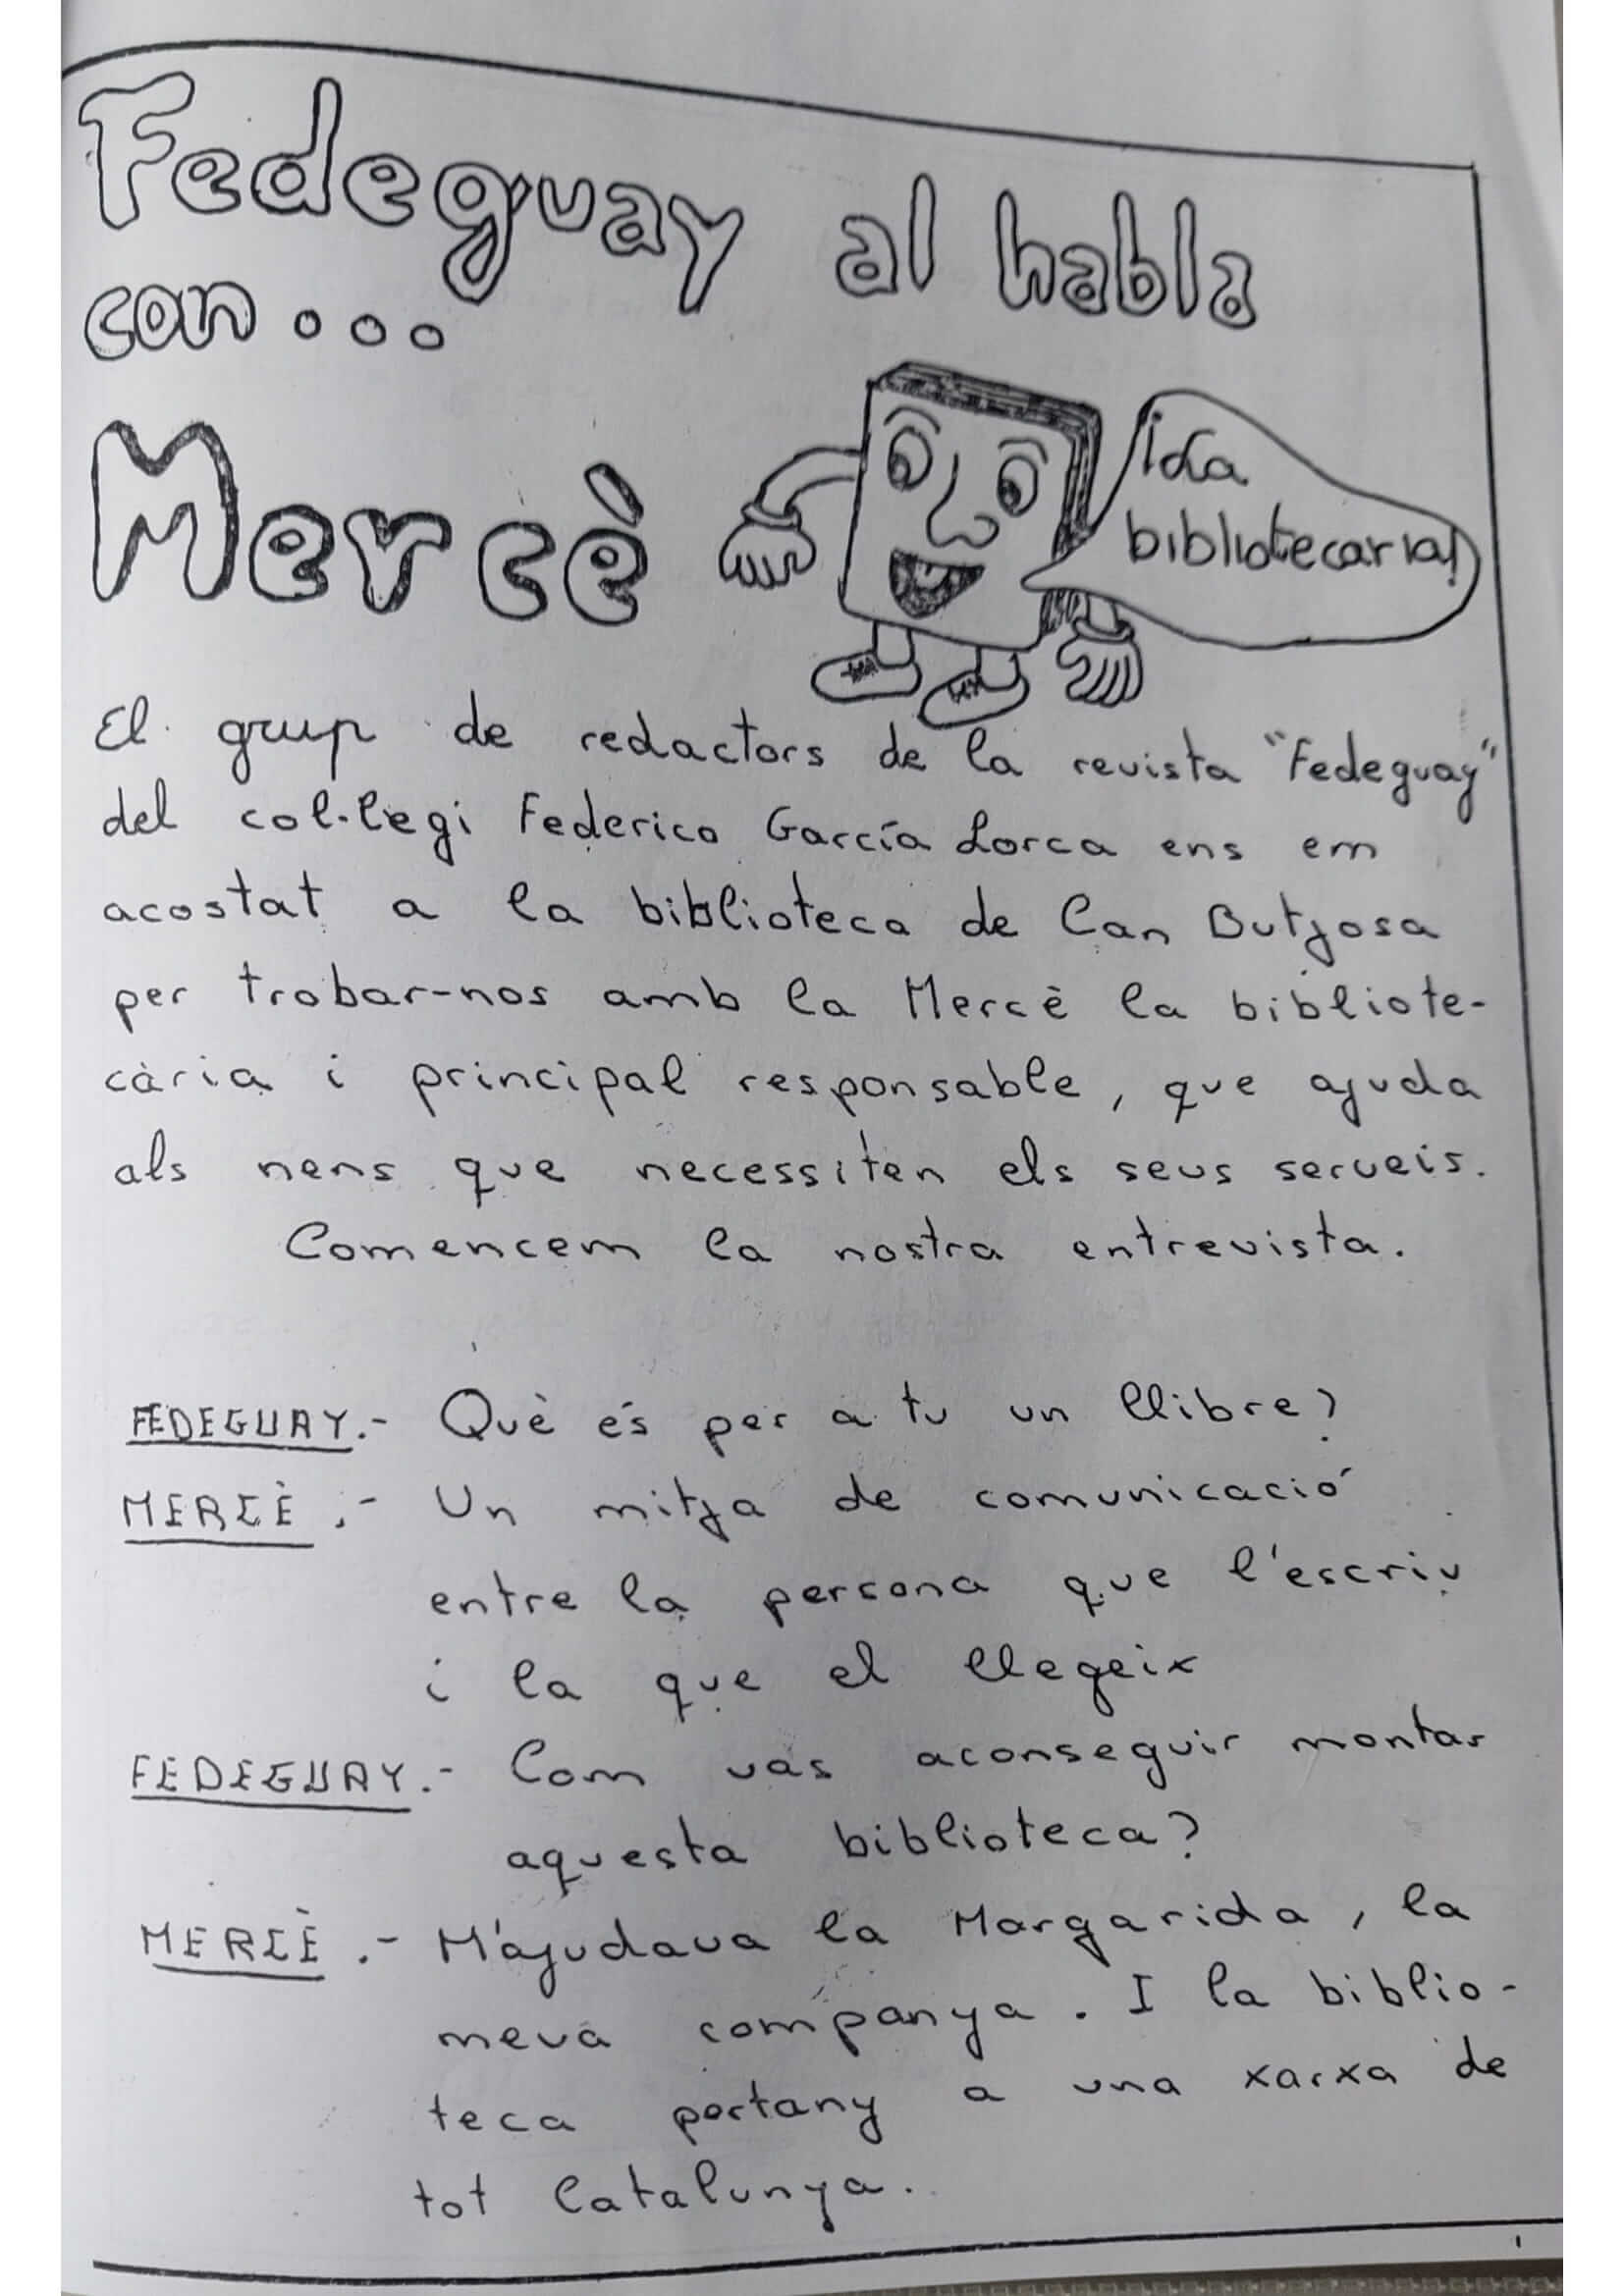 Fedeguay al habla
con...
Mercè
¡La
bibliotecaria!
El grup de redactors de la revista "Fedeguay"
del col·legi Federico García Lorca ens em
acostat a la biblioteca de Can Butjosa
per trobar-nos amb la Mercè la bibliote-
cària i principal responsable, que ajuda
als nens que necessiten els seus serveis.
Comencem la nostra entrevista.
FEDEGUAY.- Què és per a tu un llibre?
MERCÈ.- Un mitja de comunicació
entre la persona que l'escriu
i la que el llegeix
FEDEGUAY.- Com vas aconseguir montar
aquesta biblioteca?
MERCÈ.- M'ajudava la Margarida, la
meva companya. I la biblio-
teca portany a una xarxa de
tot Catalunya.